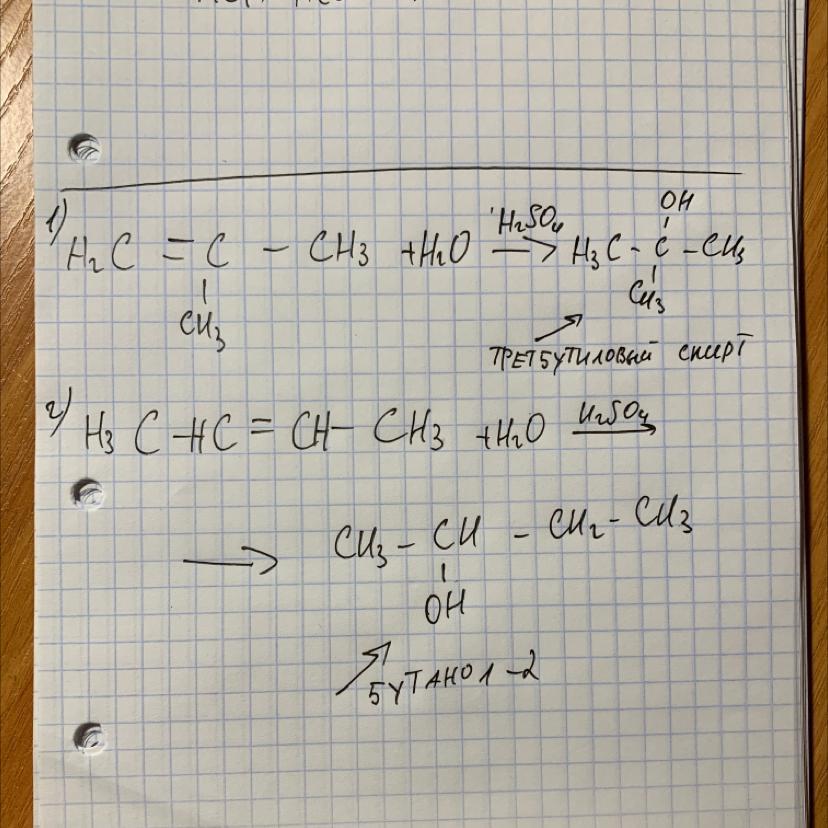 1) H₂C = C – CH₃ + H₂O →(H₂SO₄) H₃C - C(OH) - CH₃
CH₃ CH₃
ТРЕТБУТИЛОВЫЙ СПИРТ
2) H₃C – HC = CH – CH₃ + H₂O →(H₂SO₄)
→ CH₃ – CH – CH₂ – CH₃
OH
БУТАНОЛ – 2